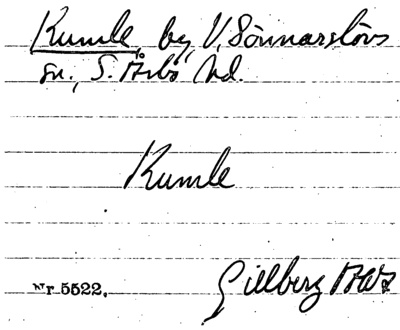 Kumle by, V. Sönnarslövs
sn., S. Åsbo hd.
Kumle
Nr 5522.
Gillberg